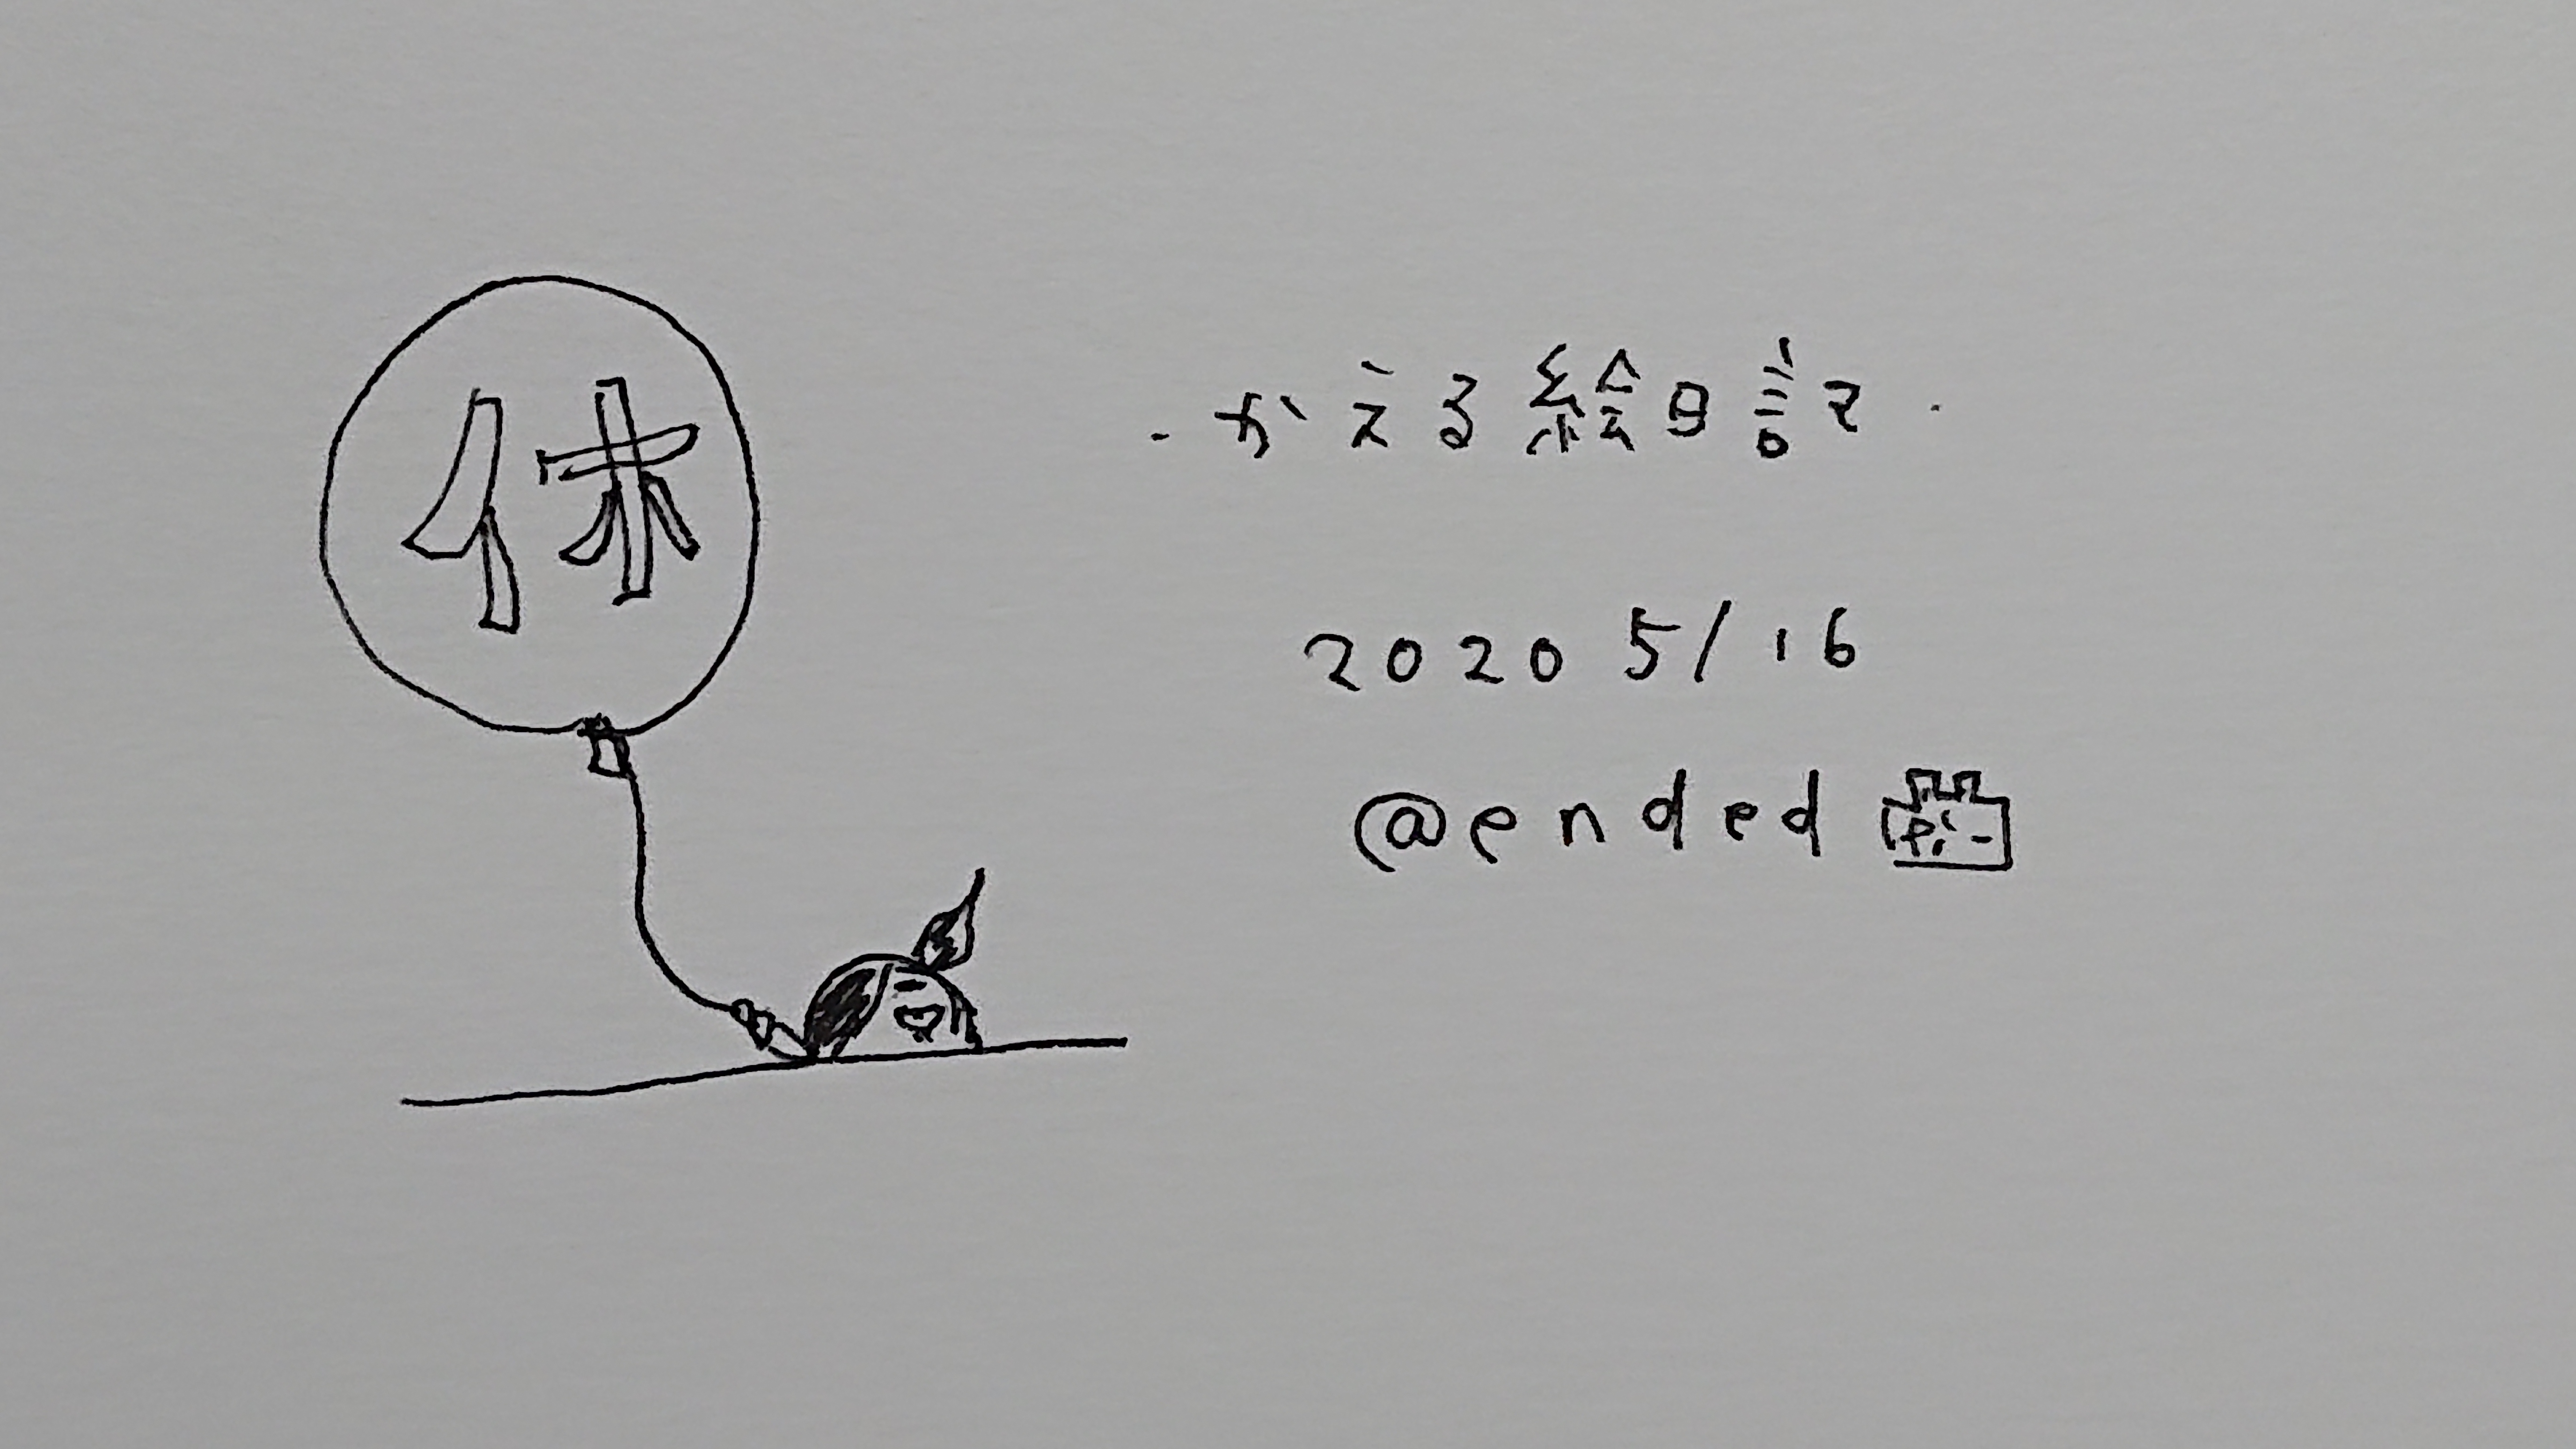 休
・かえる絵日記・
2020 5/16
@ended